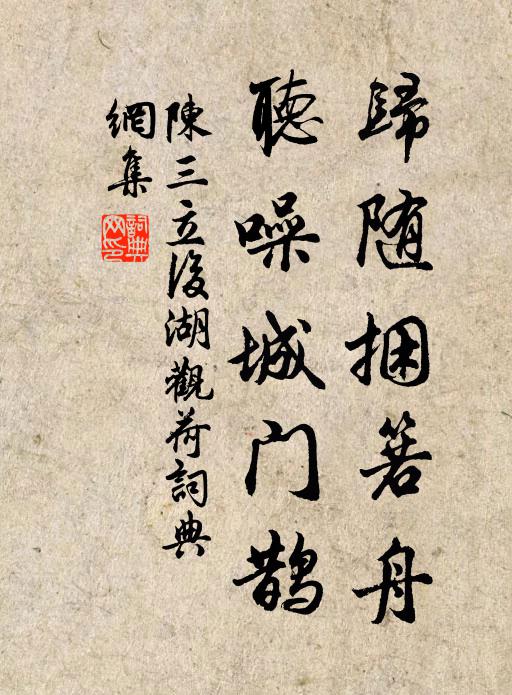 歸随捆箬舟
聽噪城门鹊
陳三立後湖觀荷詞典
網集
詞典网印